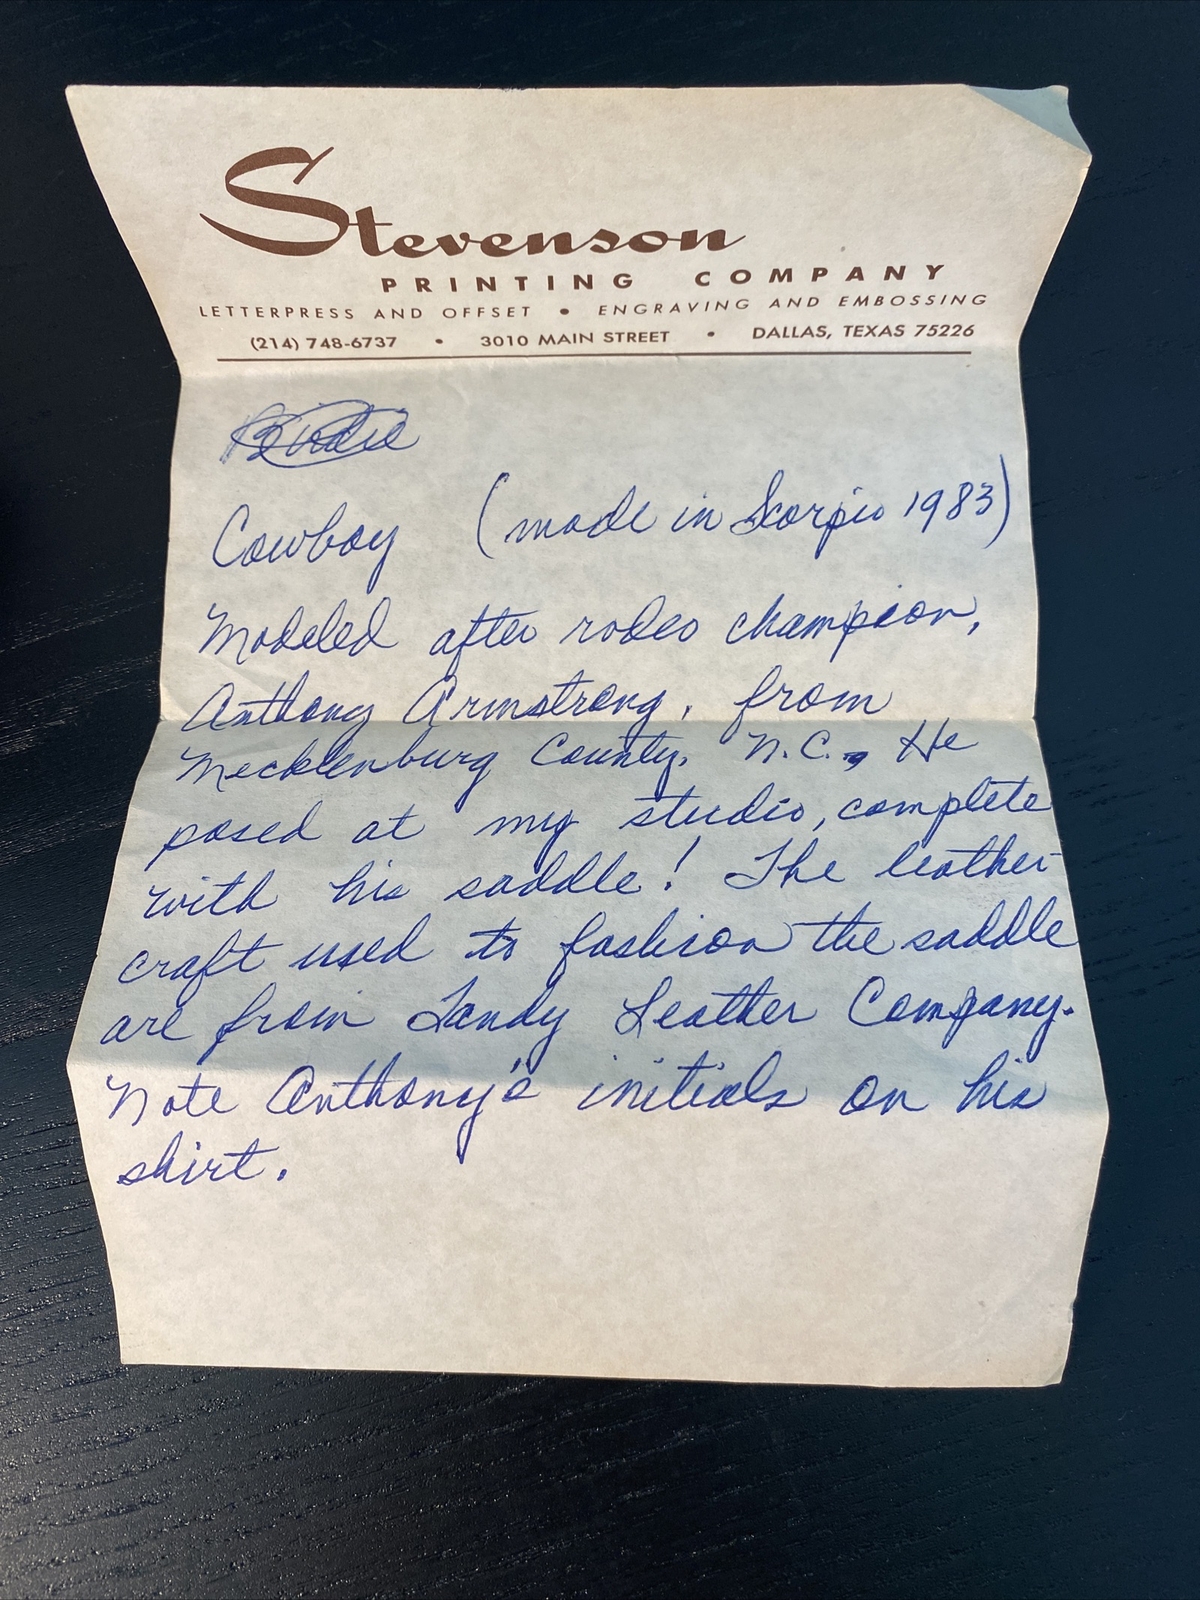 Stevenson
PRINTING COMPANY
LETTERPRESS AND OFFSET • ENGRAVING AND EMBOSSING
(214) 748-6737 • 3010 MAIN STREET • DALLAS, TEXAS 75226
Cowboy (made in Scorpio 1983)
Modeled after rodeo champion,
Anthony Armstrong, from
Mecklenburg County, N.C., He
posed at my studio, complete
with his saddle! The leather
craft used to fashion the saddle
are from Tandy Leather Company.
Note Anthony's initials on his
shirt.